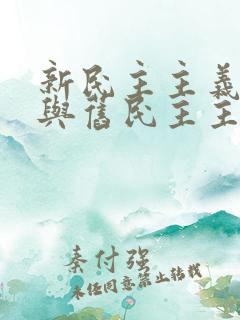 新民主主義
與舊民主主
秦付强
未经同意禁止转载